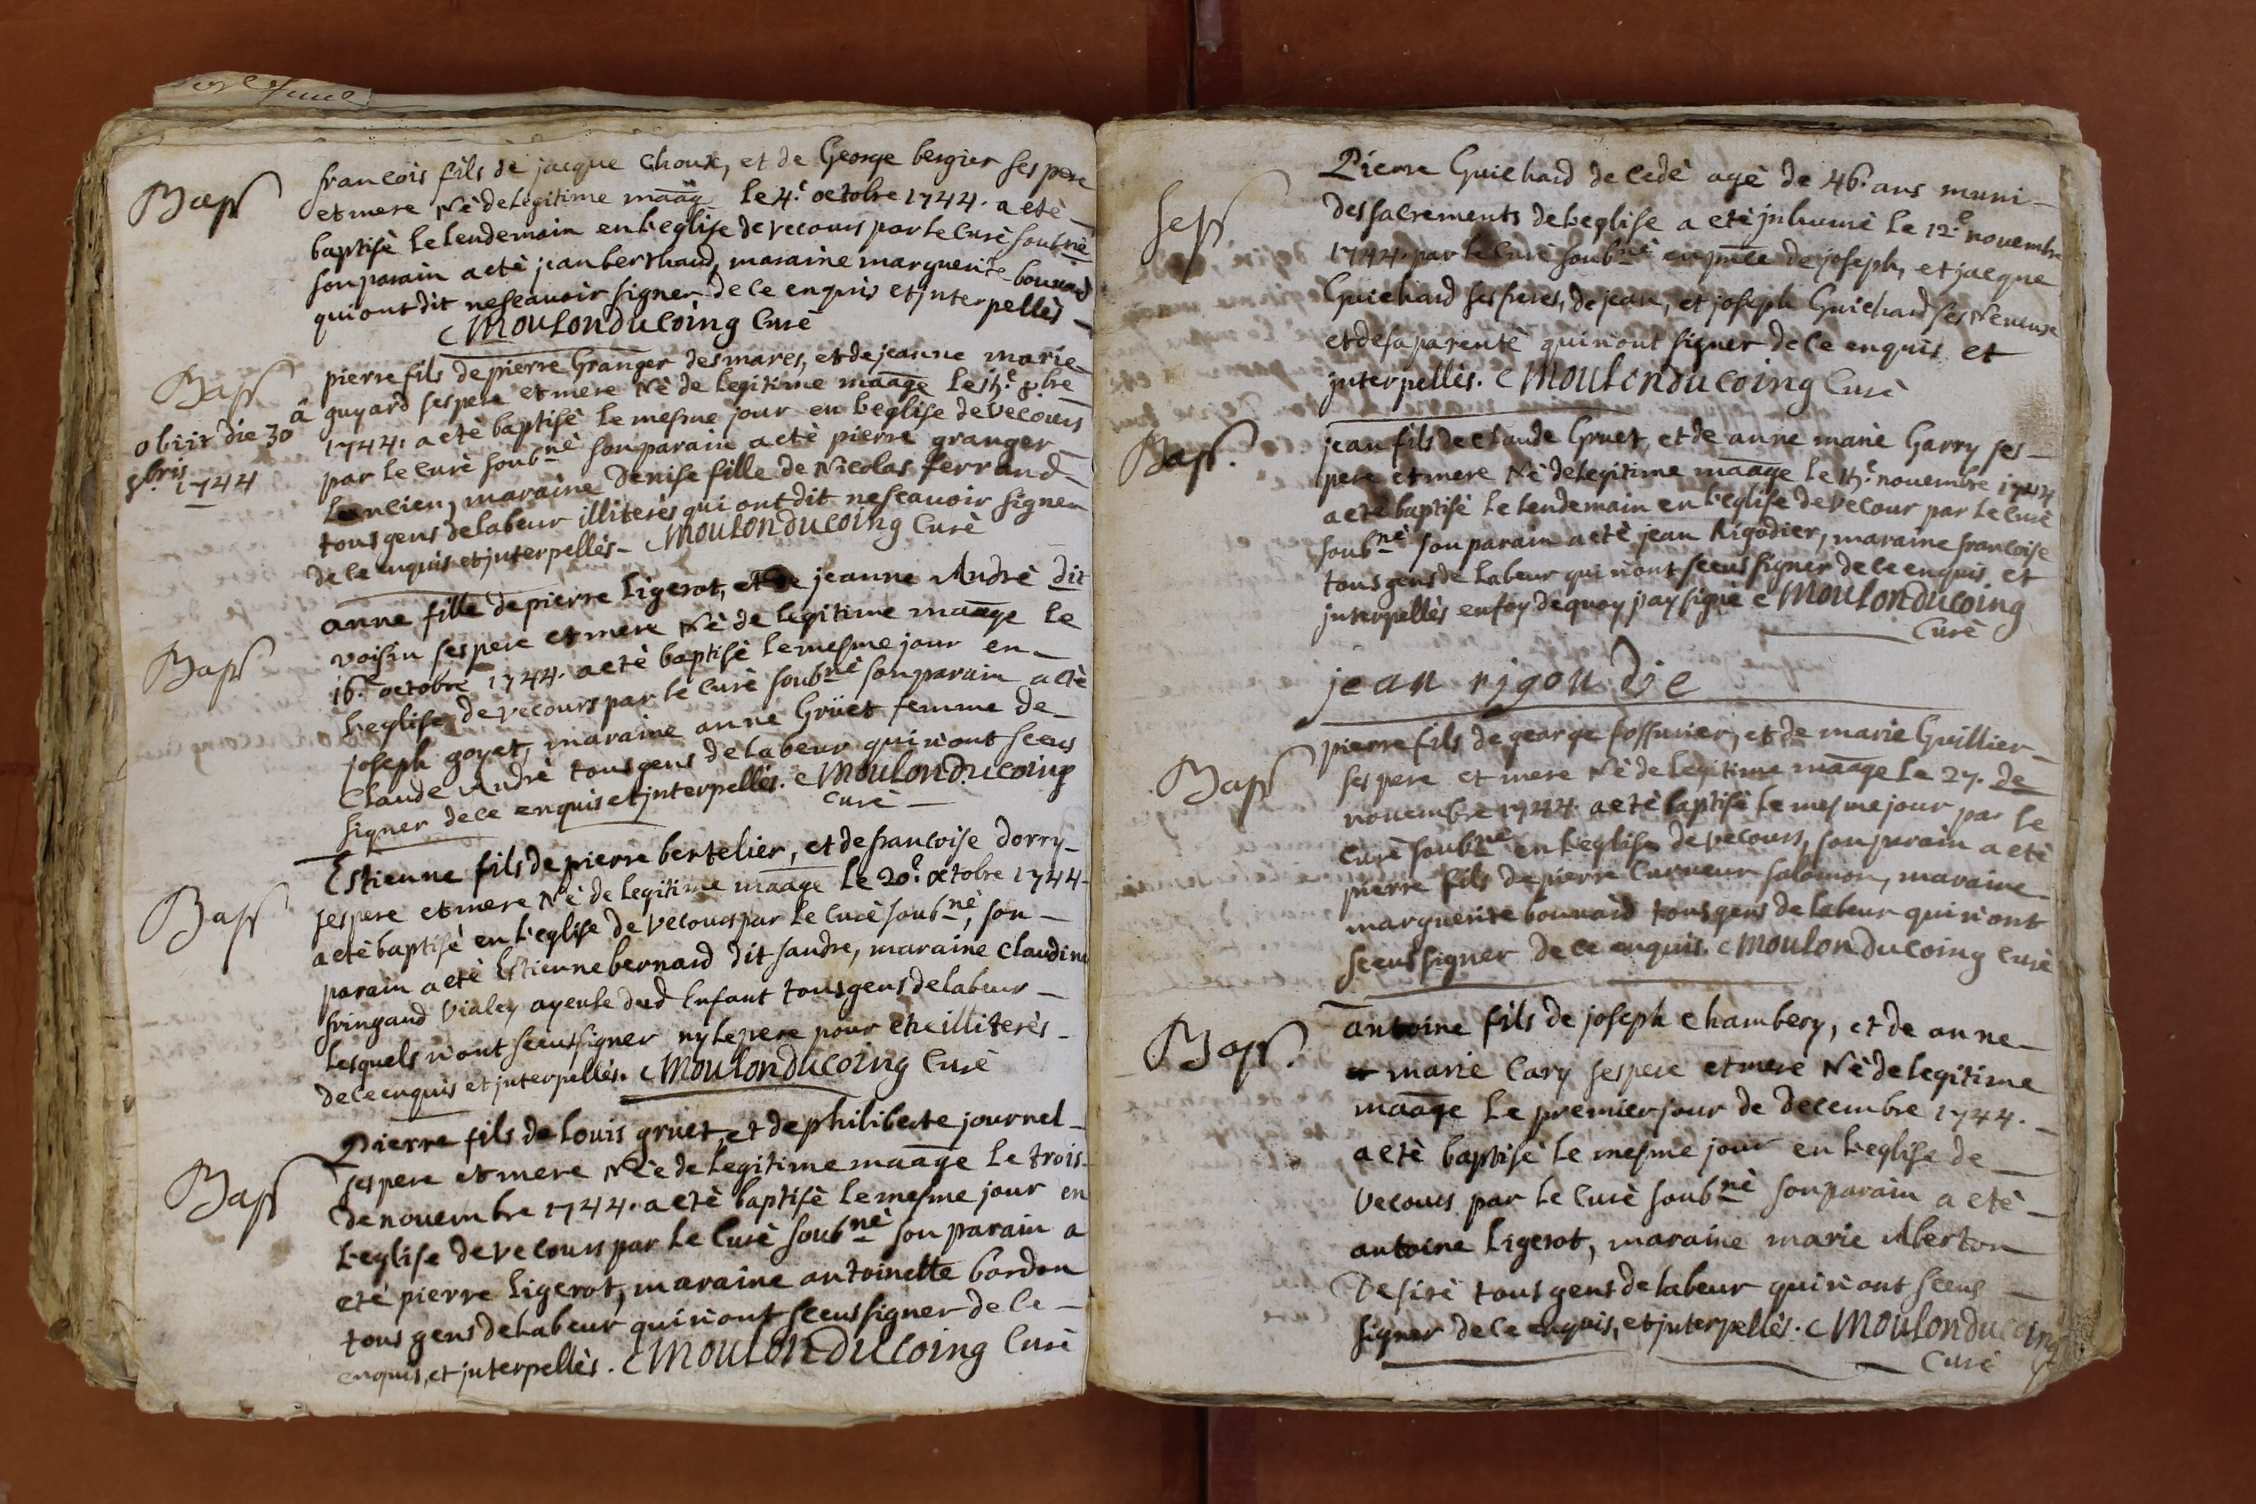 Bapt
francois fils de jacque Choux, et de George bergier ses pere
et mere Nè de legitime maãg le 4.e octobre 1744. a etè
baptisè le lendemain en l'eglise de vecours par le Curè soubnè
son parain a etè jean berthaud, maraine marguerite bouuard
qui ont dit ne scauoir signer de ce enquis et jnterpellès
Moulonducoing Curè
Bapt
obiit die 30 a
8bris 1744
pierre fils de pierre Granger des mares, et de jeanne marie
guyard ses pere et mere Nè de legitime maãge le 15.e 8bre
1744. a etè baptisè le mesme jour en l'eglise de Vecours
par le Curè soubnè son parain a etè pierre granger
l'encien, maraine Denise fille de Nicolas ferrand
tous gens de labeur illiterès qui ont dit ne scauoir signer
de ce enquis et jnterpellès Moulonducoing Curè
Bapt
anne fille de pierre Ligerot, et de jeanne Andrè dit
voisin ses pere et mere Nè de legitime maãge le
16.e octobre 1744. a etè baptisè le mesme jour en
l'eglise de vecours par le Curè soubnè son parain a etè
joseph goyet, maraine anne Grüet femme de
Claude Andrè tous gens de labeur qui n'ont sceus
signer de ce enquis et jnterpellès. Moulonducoing
Curè
Bapt
Estienne fils de pierre bertelier, et de francoise dorry
ses pere et mere Nè de legitime maãge le 20.e octobre 1744
a etè baptisè en l'eglise de Vecours par le Curè soubnè, son
parain a etè Estienne bernard dit sandre, maraine Claudine
fringand Vialey ayeule dud Enfant tous gens de labeur
lesquels n'ont sceus signer ny le pere pour etre illiterès
de ce enquis et jnterpellès. Moulonducoing Curè
Bapt
Pierre fils de Louis gruet, et de philiberte journel
ses pere et mere Nèe de legitime maãge le trois
de nouembre 1744. a etè baptisè le mesme jour en
l'eglise de vecours par le Curè soubnè son parain a
etè pierre Ligerot, maraine antoinette bordon
tous gens de labeur qui n'ont sceus signer de ce
enquis, et jnterpellès. Moulonducoing Curè
Sep
Pierre Guichard decedè agè de 46. ans muni
des sacrements de l'eglise a etè jnhumè le 12.e nouembre
1744. par le Curè soubnè en pnce de joseph, et jacque
Guichard ses freres, de jean, et joseph Guichard ses Neueus
et de sa parentè qui n'ont signer de ce enquis et
jnterpellès. Moulonducoing Curè
Bapt.
jean fils de Claude Gruet, et de anne marie Garry ses
pere et mere Nè de legitime maãge le 15.e nouembre 1744
a etè baptisè le lendemain en l'eglise de vecour par le Curè
soubnè son parain a etè jean Rigodier, maraine francoise
tous gens de labeur qui n'ont sceus signer de ce enquis et
jnterpellès en foy de quoy j'ay signè Moulonducoing
Curè
jean rigou die
Bapt
pierre fils de george fossurier, et de marie Guillier
ses pere et mere Nè de legitime maãge le 27. de
nouembre 1744. a etè baptisè le mesme jour par le
Curè soubnè en l'eglise de vecours, son parain a etè
pierre fils de pierre Curueur salomon, maraine
marguerite bouuard tous gens de labeur qui n'ont
sceus signer de ce enquis. Moulonducoing Curè
Bapt.
antoine fils de joseph Chambery, et de anne
marie Cary ses pere et mere Nè de legitime
maãge le premier jour de decembre 1744.
a etè baptisè le mesme jour en l'eglise de
Vecours par le Curè soubnè son parain a etè
antoine Ligerot, maraine marie Aberton
Desirè tous gens de labeur qui n'ont sceus
signer de ce enquis, et jnterpellès. Moulonducoing
Curè